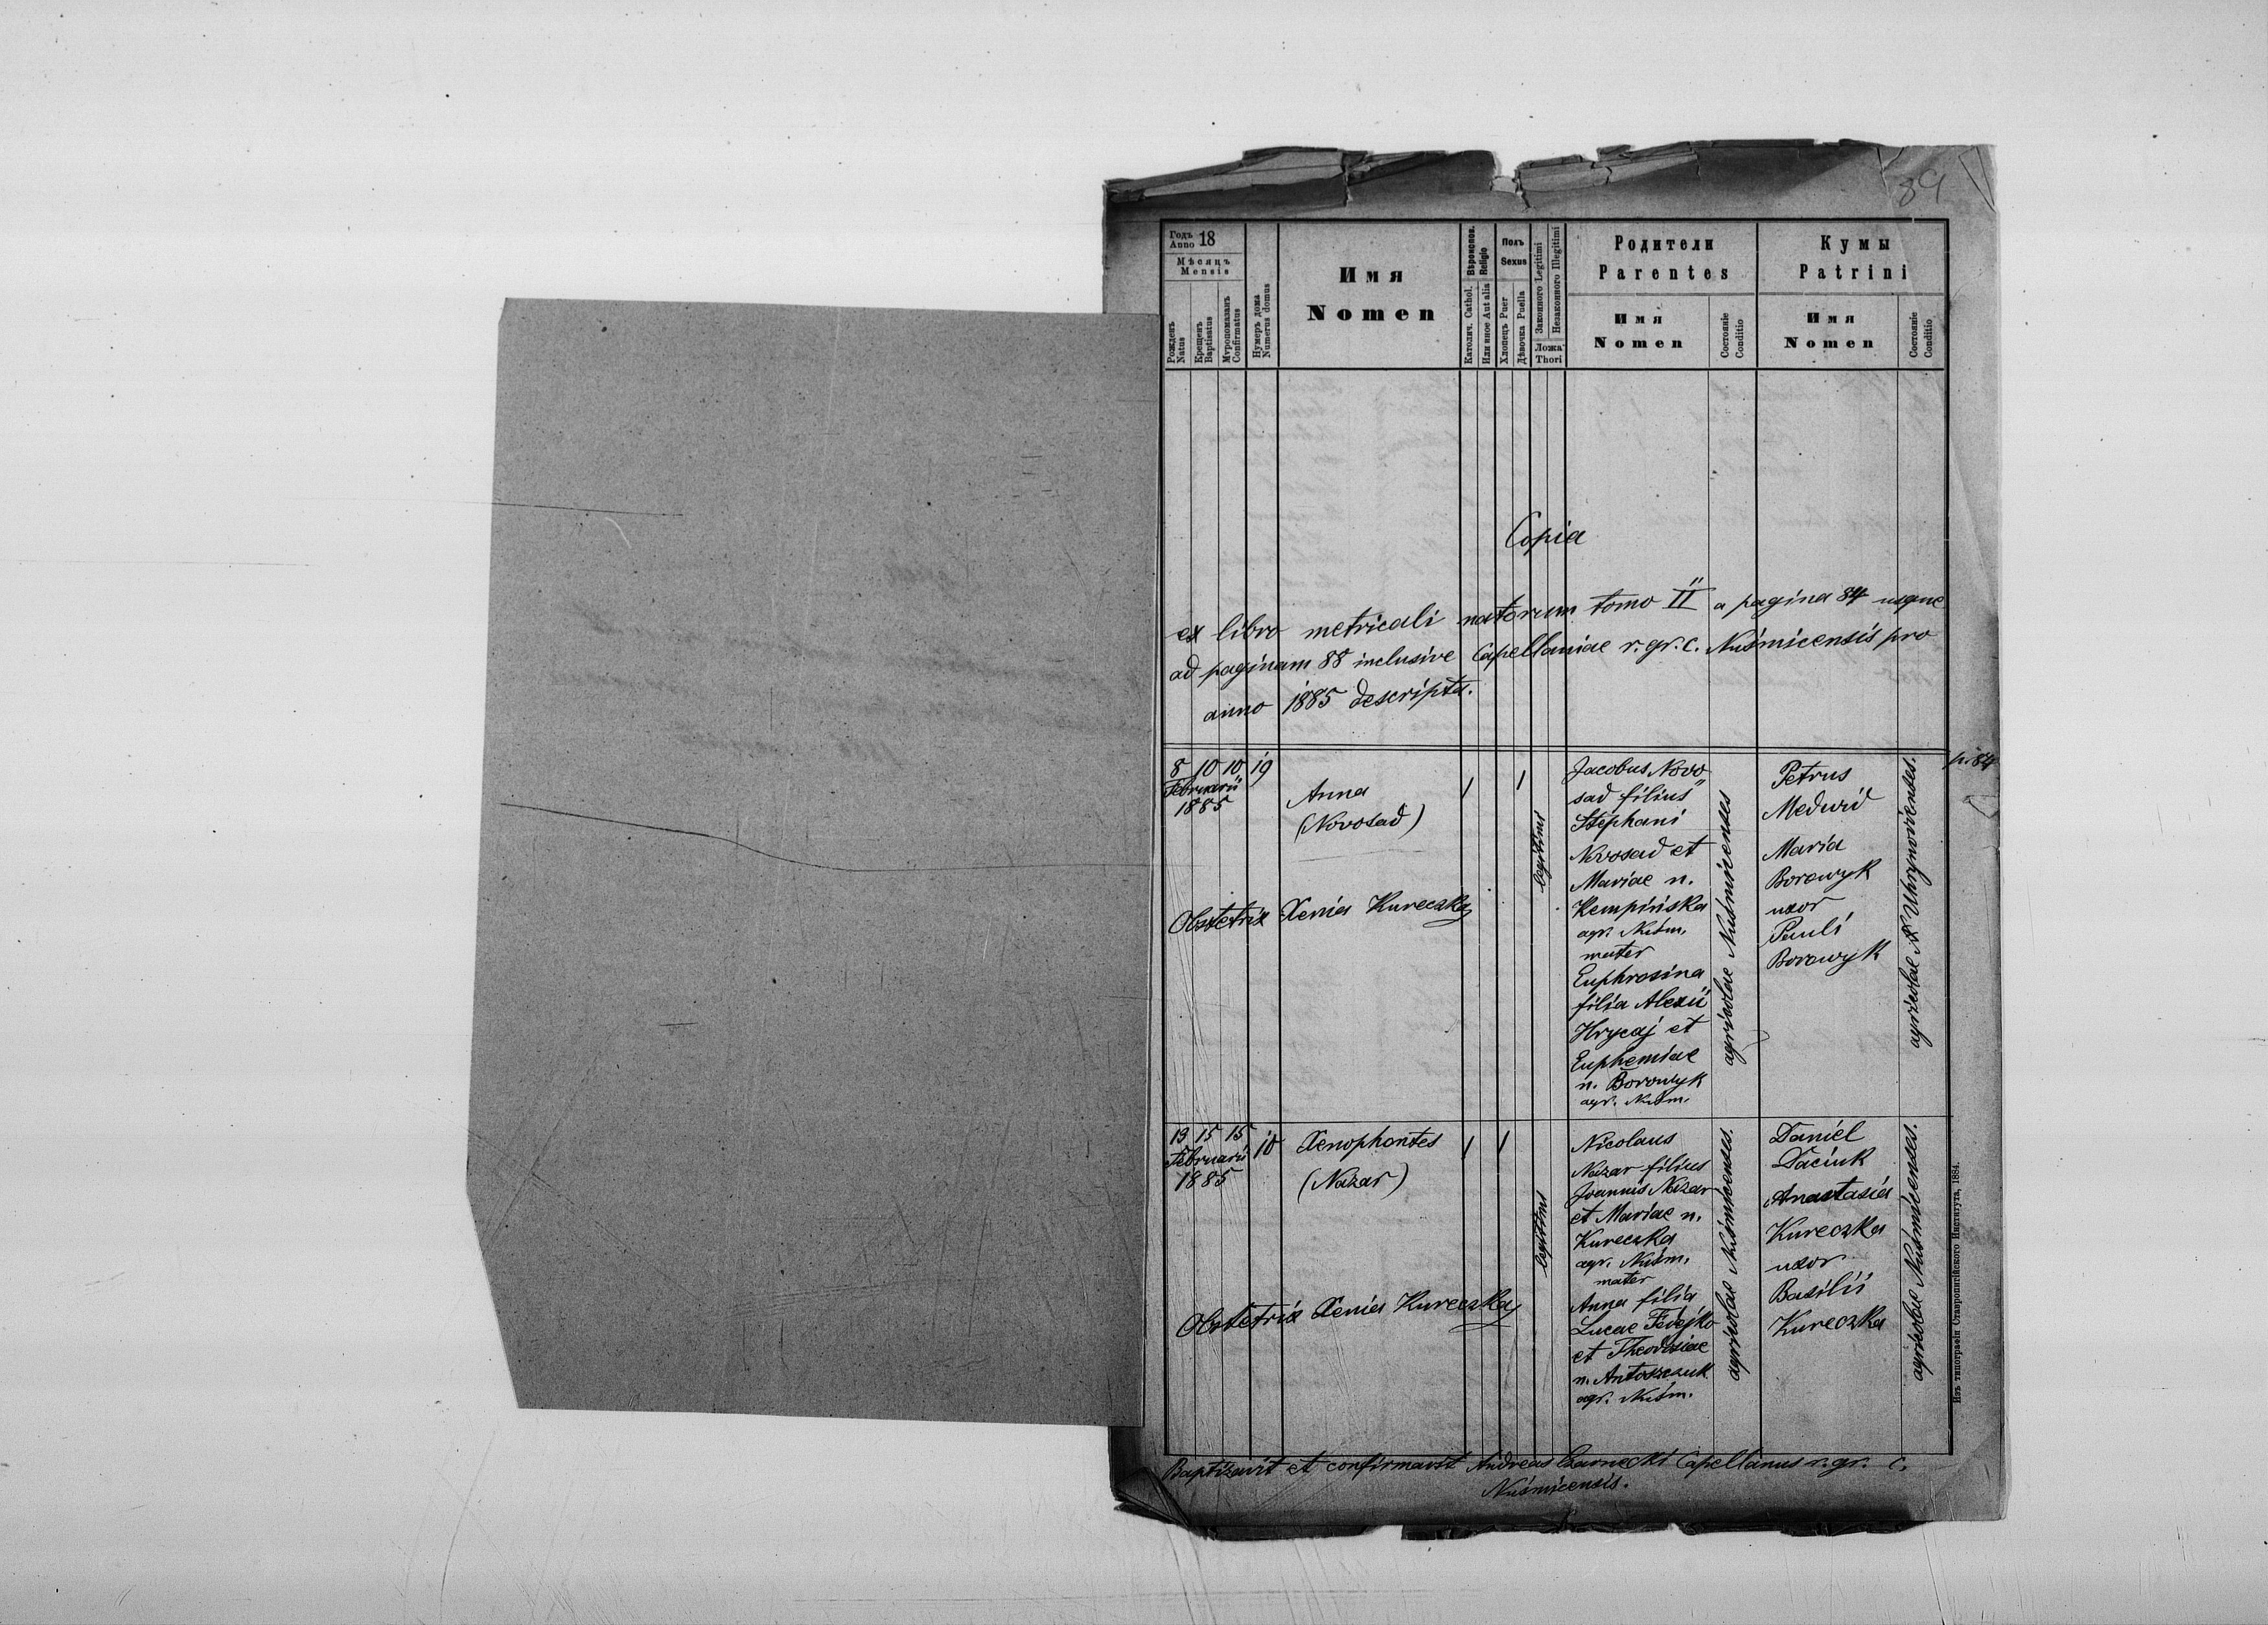 89
Годъ
Anno 18
Мѣсяцъ
Mensis
Рожденъ
Natus
Крещенъ
Baptisatus
Мѵропомазанъ
Confirmatus
Нумеръ дома
Numerus domus
Имя
Nomen
Вѣроиспов.
Religio
Католич. Cathol.
Или иное Aut alia
Полъ
Sexus
Хлопецъ Puer
Дѣвочка Puella
Законного Legitimi
Незаконного Illegitimi
Ложа
Thori
Родители
Parentes
Имя
Nomen
Состояніе
Conditio
Кумы
Patrini
Имя
Nomen
Состояніе
Conditio
Copia
ex libro metricali natorum tomo II a pagina 84 usque
ad paginam 88 inclusive Capellaniae r. gr. c. Nuśmicensis pro
anno 1885 descripta.
p. 84
8 10 10 19
Februarii
1885
Anna
(Novosad)
1 1
legitimi
Jacobus Novo
sad filius
Stephani
Novosad et
Mariae n.
Kempińska
agr. Nuśm.
mater
Euphrosina
filia Alexii
Hrycaj et
Euphemiae
n. Borowyk
agr. Nuśm.
agricolae Nuśmicenses
Petrus
Medwid
Maria
Borowyk
uxor
Pauli
Borowyk
agricolae Uhrynovienses.
Obstetrix Xenia Kureczka
13 15 15 10
Februarii
1885
Xenophontes
(Nazar)
1 1
legitimi
Nicolaus
Nazar filius
Joannis Nazar
et Mariae n.
Kureczka
agr. Nuśm.
mater
Anna filia
Lucae Fedejko
et Theodosiae
n. Antoszczuk
agr. Nuśm.
agricolae Nuśmicenses.
Daniel
Daciuk
Anastasia
Kureczka
uxor
Basilii
Kureczka
agricolae Nuśmicenses.
Obstetrix Xenia Kureczka
Baptizavit et confirmavit Andreas Czarnecki Capellanus r. gr. c.
Nuśmicensis.
Изъ типографіи Ставропигійского Института, 1884.